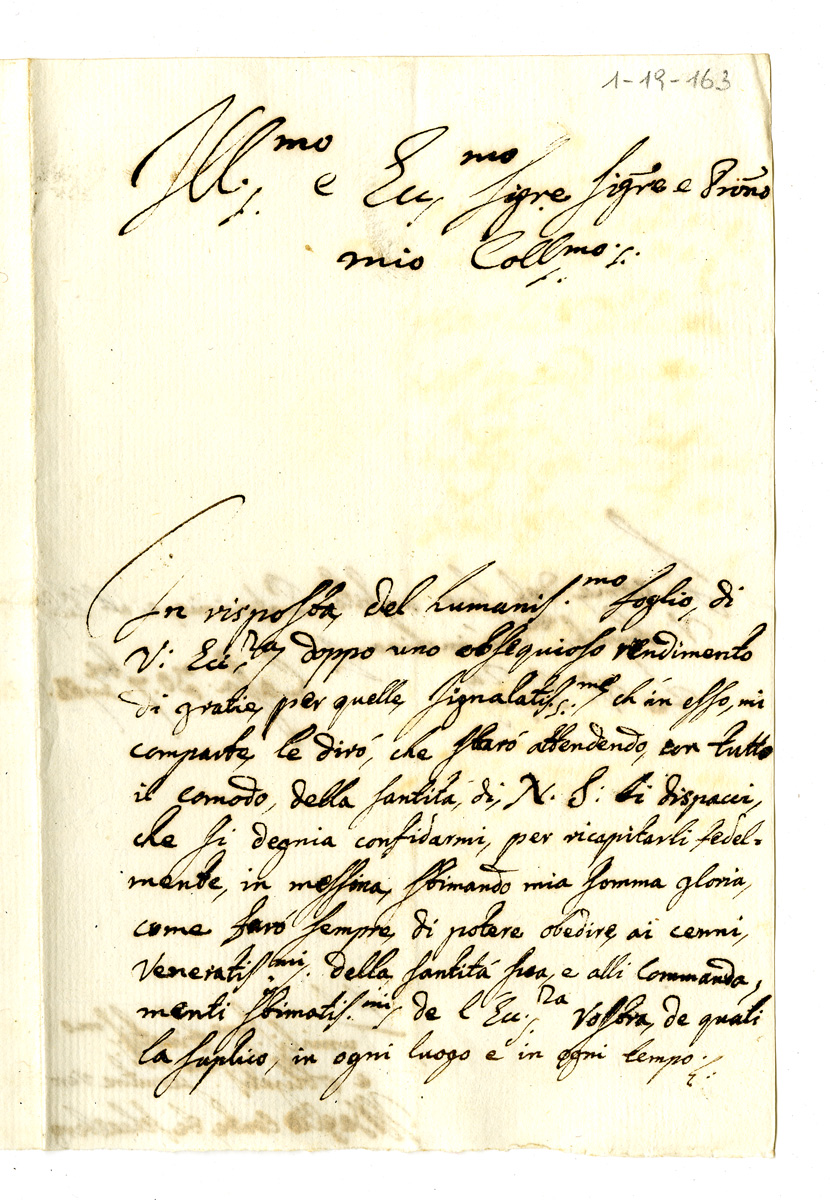 1-19-163
Ill.mo e Ecc.mo Sig.re Sig.re e Pron̄o
mio Coll.mo
In risposta, del humanis.mo foglio, di
V: Ecc.za doppo uno obsequioso rendimento
di gratie, per quelle, signalatis.me ch'in esso, mi
comparte, le diró, che staró attendendo, con tutto
il comodo, della santità, di, N. S: li dispacci,
che si degnia confidarmi, per ricapitarli fedel-
mente, in messina, stimando mia somma gloria,
come faró sempre, di potere obedire, ai cenni,
Veneratis.mi della santitá sua, e alli Commanda,
menti stimatis.mi de l'Ecc.za Vostra, de quali
la suplico, in ogni luogo e in ogni tempo.